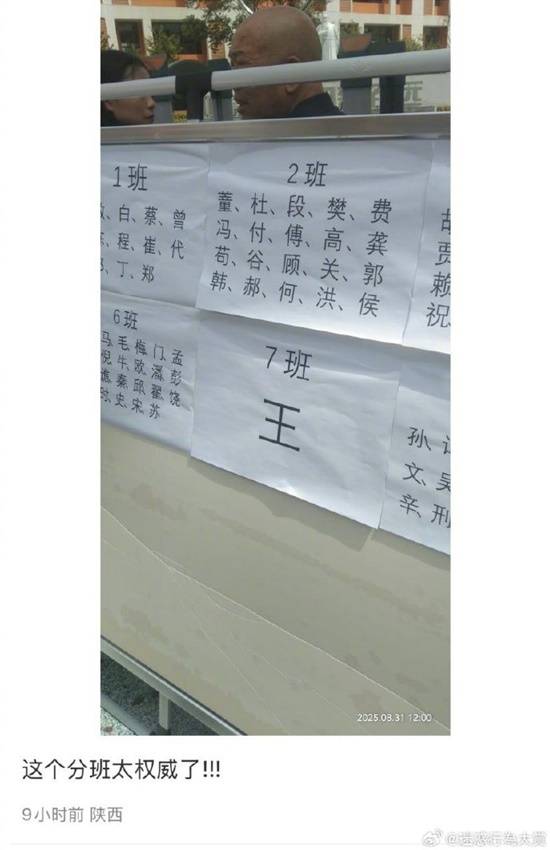 1班
白、蔡、曾
程、崔、代
丁、郑
2班
董、杜、段、樊、费
冯、付、傅、高、龚
苟、谷、顾、关、郭
韩、郝、何、洪、侯
贾
赖
祝
6班
马、毛、梅、门、孟
倪、牛、欧、潘、彭
谯、秦、邱、翟、饶
时、史、宋、苏
7班
王
孙、
文、吴
辛、刑
2025.08.31 12:00
这个分班太权威了!!!
9小时前 陕西
@迷惑行为大赏